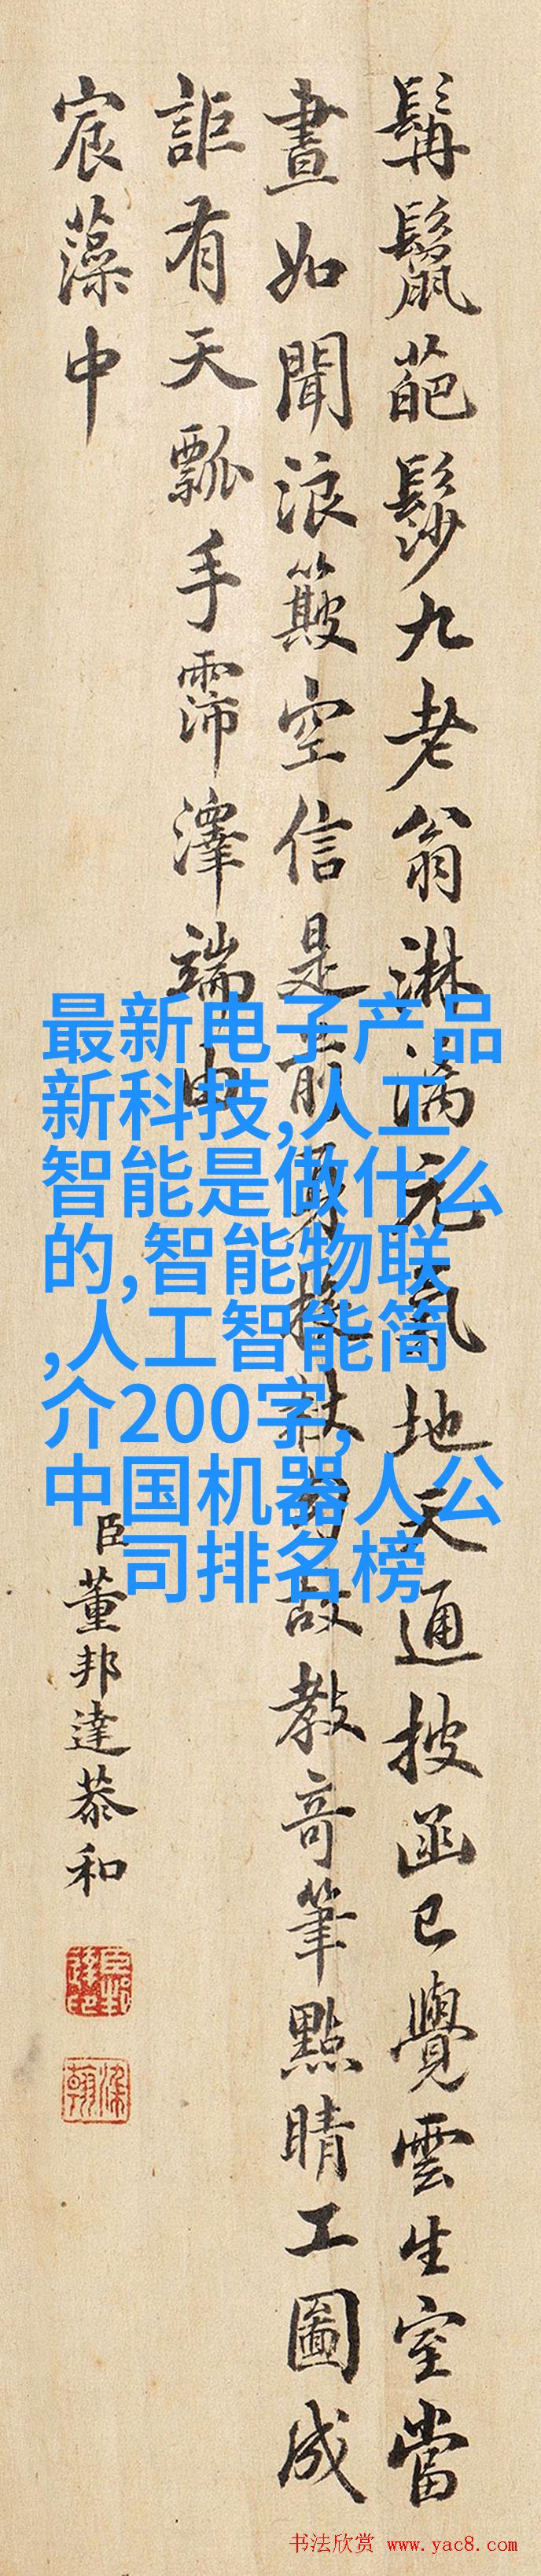 髯鬣葩髿九老翁淋漓元氣地天通披函已覺雲生室當
晝如聞浪簸空信是前身杖故教奇筆點睛工圖成
詎有天瓢手霈澤端由
宸藻中
臣董邦達恭和
染翰
最新电子产品
新科技,人工
智能是做什么
的,智能物联
,人工智能简
介200字,
中国机器人公
司排名榜
书法欣赏 www.yac8.com